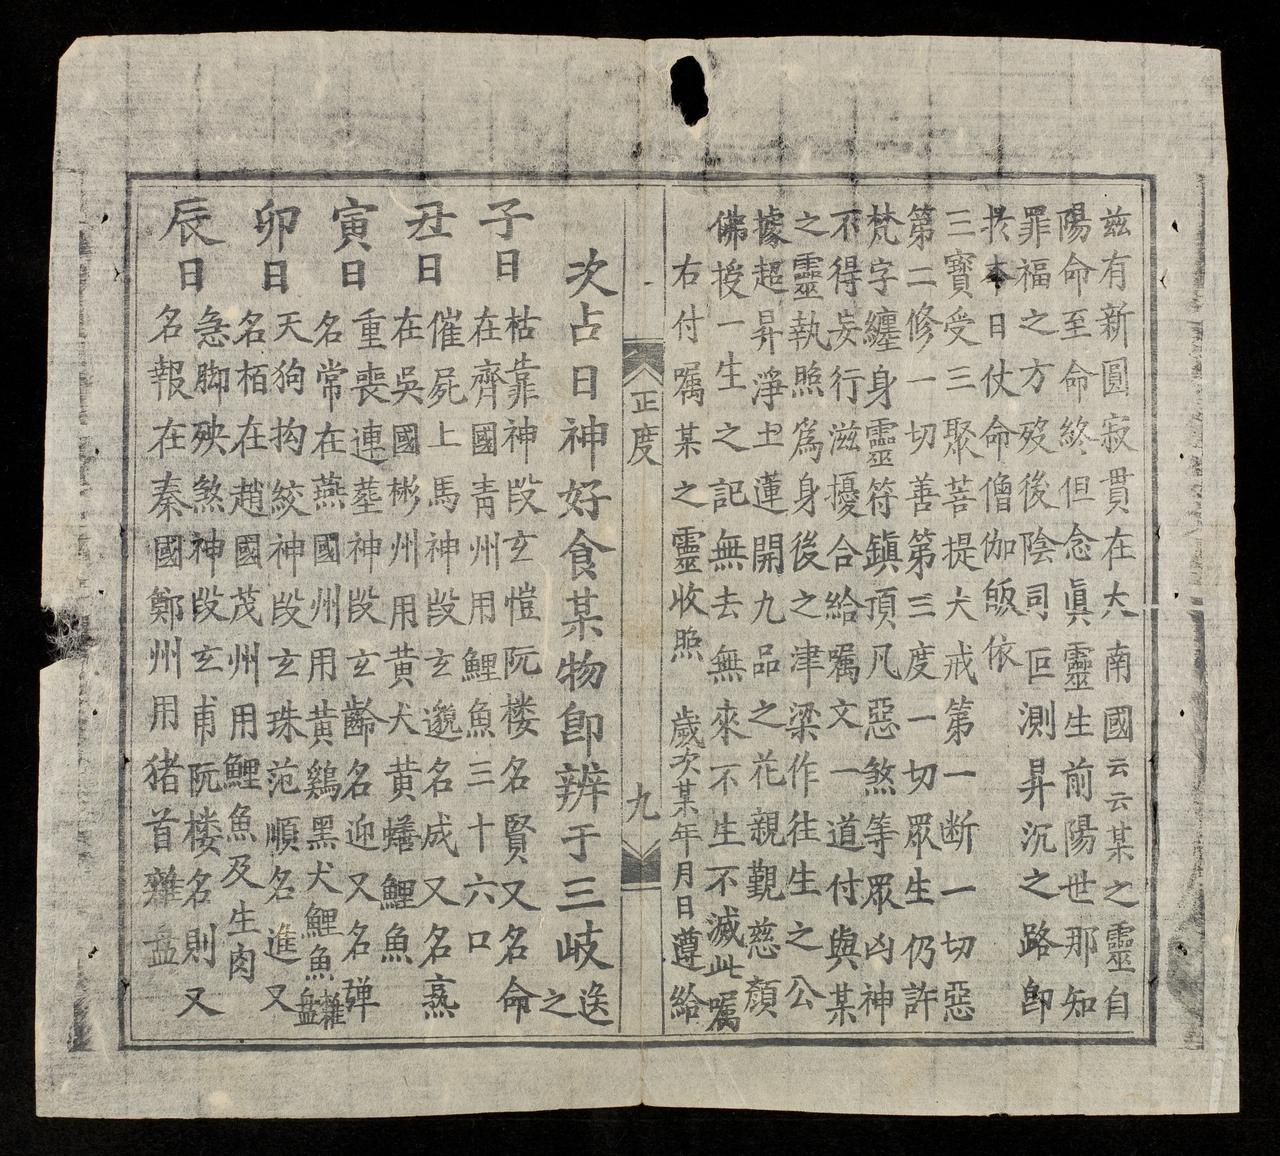 兹有新圓寂貫在大南國云云某之靈自
陽命至命終但念眞靈生前陽世那知
罪福之方歿後陰司叵測昇沉之路卽
本日仗命僧伽皈依
三寶受三聚菩提大戒第一断一切惡
第二修一切善第三度一切眾生仍許
梵字纏身靈符鎮頂凡惡煞等眾凶神
不得妄行滋擾合給嘱文一道付與某
之靈執照為身後之津梁作往生之公
據超昇淨土蓮開九品之花親覲慈顏
佛授一生之記無去無來不生不滅此嘱
右付嘱某之靈收照　歲次某年月日遵給
正度　九
次占日神好食某物卽辨于三岐送之
子日　枯靠神段玄愷阮楼名賢又名命
在齊國青州用鯉魚三十六口
丑日　催屍上馬神段玄邈名成又名熹
在吳國彬州用黄犬黄蟮鯉魚
寅日　重喪連塟神段玄齡名迎又名弹
名常在燕國州用黄鷄黑犬鯉魚雜盐
卯日　天狗拘絞神段玄珠范順名進又
名栢在趙國茂州用鯉魚及生肉
辰日　急脚殃煞神段玄甫阮楼名則又
名報在秦國鄭州用猪首雜盐